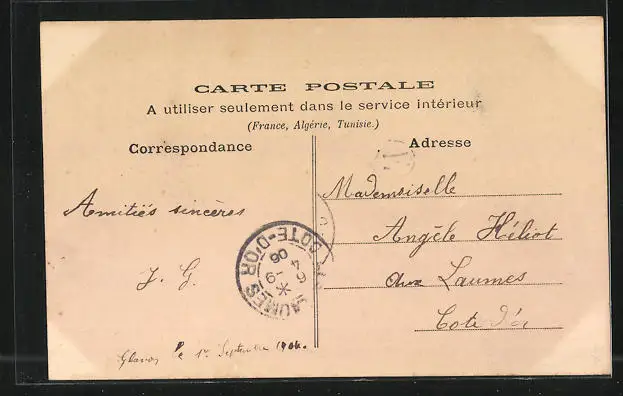 CARTE POSTALE
A utiliser seulement dans le service intérieur
(France, Algérie, Tunisie.)
Correspondance
Adresse
Amitiés sincères
J. G.
le 1er Septembre 1904.
Mademoiselle
Angèle Héliot
aux Laumes
Cote d'or
LAUMES
COTE-D'OR